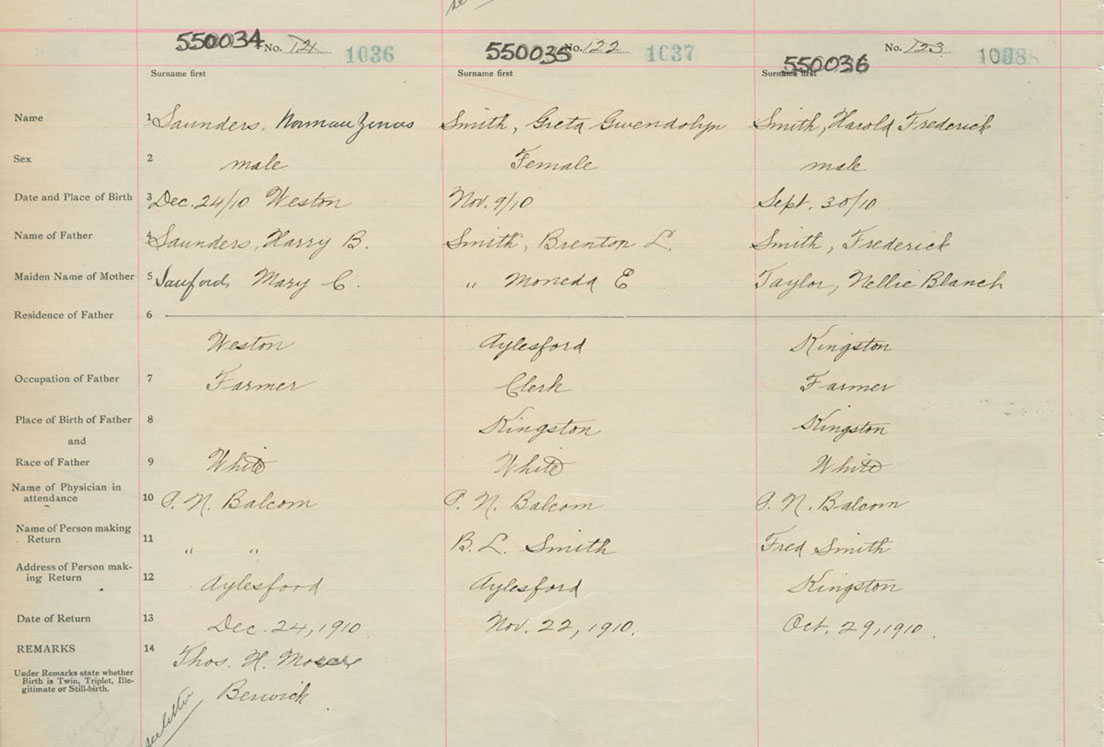 550034 No. 121 1036 550035 No. 122 1037 550036 No. 123 1038
Surname first Surname first Surname first
Name 1 Saunders, Norman Smith, Greta Gwendolyn Smith, Harold Frederick
Sex 2 male Female male
Date and Place of Birth 3 Dec. 24/10 Weston Nov. 9/10 Sept. 30/10
Name of Father 4 Saunders, Harry B. Smith, Brenton L. Smith, Frederick
Maiden Name of Mother 5 Mary C. " Moneda E Taylor, Nellie Blanch
Residence of Father 6
Weston Aylesford Kingston
Occupation of Father 7 Farmer Clerk Farmer
Place of Birth of Father 8 Kingston Kingston
and
Race of Father 9 White White White
Name of Physician in
attendance 10 P. N. Balcom P. N. Balcom P. N. Balcom
Name of Person making
Return 11 " " B. L. Smith Fred Smith
Address of Person mak-
ing Return 12 Aylesford Aylesford Kingston
Date of Return 13 Dec. 24, 1910 Nov. 22, 1910. Oct. 29, 1910.
REMARKS 14 Thos. H.
Under Remarks state whether
Birth is Twin, Triplet, Ille-
gitimate or Still-birth.
Berwick